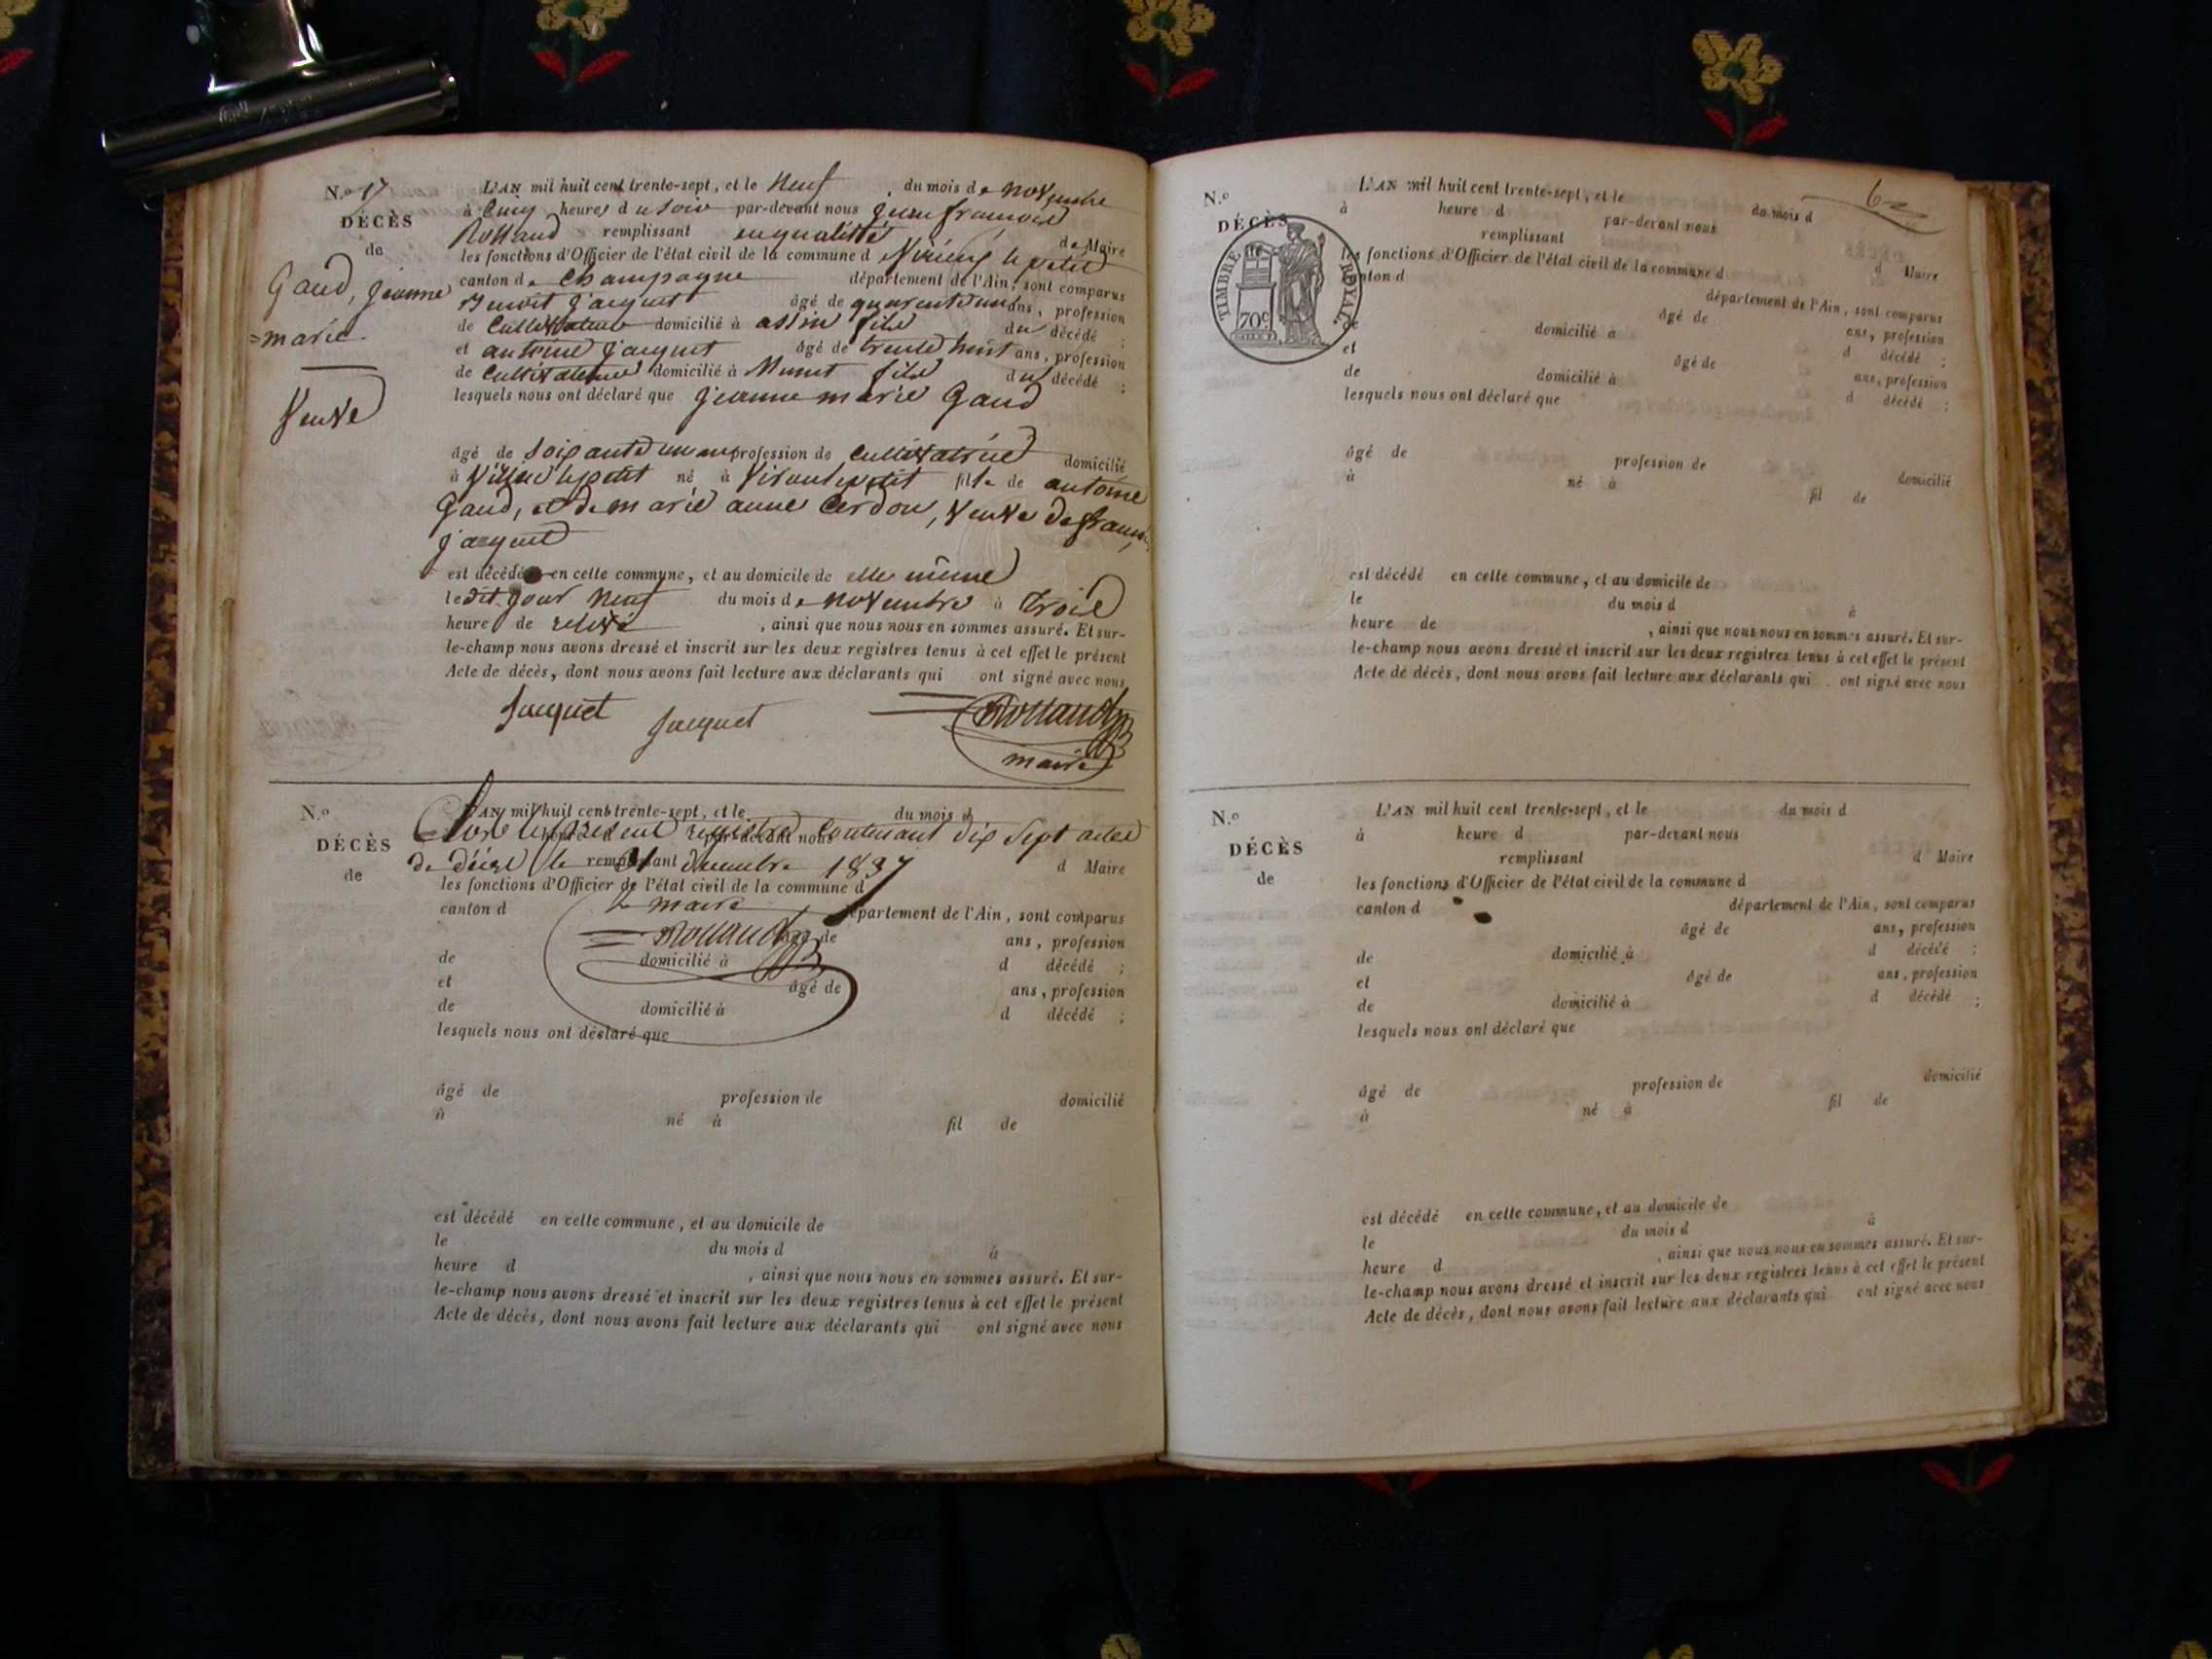 N.º 17
DÉCÈS
de
Gaud, jeanne
=marie.
Veuve
L'AN mil huit cent trente-sept, et le neuf du mois de novembre
à Cinq heures du soir par-devant nous jean francois
Rolland remplissant en qualitté de Maire
les fonctions d'Officier de l'état civil de la commune d Virieu le petit
canton de Champagne département de l'Ain, sont comparus
Benoit jacquet âgé de quarente ans, profession
de Cultivateur domicilié à assin fils du décédé ;
et antoine jacquet âgé de trente huit ans, profession
de Cultivateur domicilié à Munet fils du décédé ;
lesquels nous ont déclaré que jeanne marie Gaud
âgé de soixante un ans profession de Cultivatrice domicilié
à Virieu le petit né à Virieu le petit fille de antoine
Gaud, et de marie anne Cerdon, veuve de francois
jacquet
est décédé en cette commune, et au domicile de elle même
le dit jour neuf du mois de novembre à trois
heure de relevé , ainsi que nous nous en sommes assuré. Et sur-
le-champ nous avons dressé et inscrit sur les deux registres tenus à cet effet le présent
Acte de décès, dont nous avons fait lecture aux déclarants qui ont signé avec nous
Jacquet Jacquet Rolland
maire
N.º
DÉCÈS
de
L'AN mil huit cent trente-sept, et le du mois d
Clos le présent registre Contenant dix Sept actes
heure d par-devant nous
de décès le 31 decembre 1837
remplissant d Maire
les fonctions d'Officier de l'état civil de la commune d
le maire
canton d département de l'Ain, sont comparus
Rolland
âgé de ans, profession
de domicilié à d décédé ;
et âgé de ans, profession
de domicilié à d décédé ;
lesquels nous ont déclaré que
âgé de profession de domicilié
à né à fil de
est décédé en cette commune, et au domicile de
le du mois d à
heure d , ainsi que nous nous en sommes assuré. Et sur-
le-champ nous avons dressé et inscrit sur les deux registres tenus à cet effet le présent
Acte de décès, dont nous avons fait lecture aux déclarants qui ont signé avec nous
6
N.º
DÉCÈS
TIMBRE ROYAL.
70c
L'AN mil huit cent trente-sept, et le du mois d
à heure d par-devant nous
remplissant d Maire
les fonctions d'Officier de l'état civil de la commune d
canton d département de l'Ain, sont comparus
âgé de ans, profession
de domicilié à d décédé ;
et âgé de ans, profession
de domicilié à d décédé ;
lesquels nous ont déclaré que
âgé de profession de domicilié
à né à fil de
est décédé en cette commune, et au domicile de
le du mois d à
heure de , ainsi que nous nous en sommes assuré. Et sur-
le-champ nous avons dressé et inscrit sur les deux registres tenus à cet effet le présent
Acte de décès, dont nous avons fait lecture aux déclarants qui ont signé avec nous
N.º
DÉCÈS
de
L'AN mil huit cent trente-sept, et le du mois d
à heure d par-devant nous
remplissant d Maire
les fonctions d'Officier de l'état civil de la commune d
canton d département de l'Ain, sont comparus
âgé de ans, profession
de domicilié à d décédé ;
et âgé de ans, profession
de domicilié à d décédé ;
lesquels nous ont déclaré que
âgé de profession de domicilié
à né à fil de
est décédé en cette commune, et au domicile de
le du mois d à
heure d , ainsi que nous nous en sommes assuré. Et sur-
le-champ nous avons dressé et inscrit sur les deux registres tenus à cet effet le présent
Acte de décès, dont nous avons fait lecture aux déclarants qui ont signé avec nous